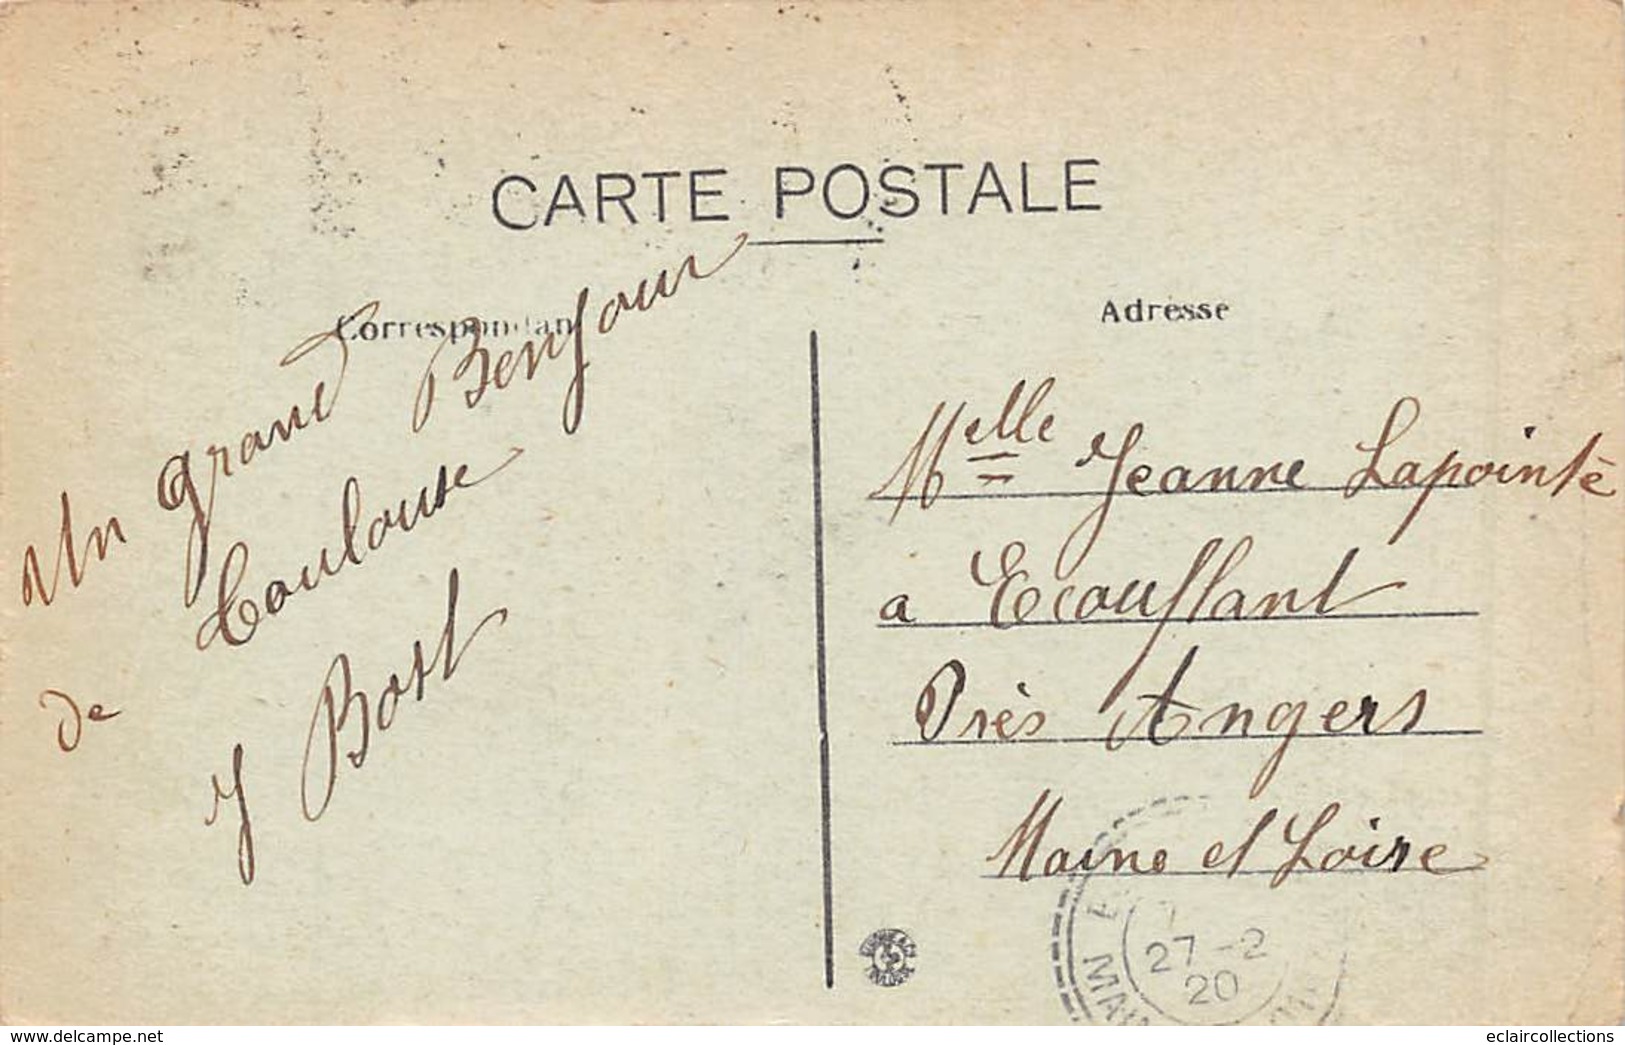 CARTE POSTALE
Correspondan
Adresse
Un grand Bonjour
de Toulouse
J Bost
Melle Jeanne Lapointe
a Ecouflant
Près Angers
Maine et Loire
27-2
20
MAI
delcampe.net
eclaircollections